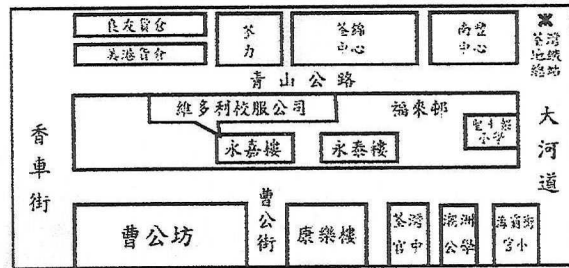 良友貨倉
美港貨倉
荃力
荃錦中心
南豐中心
荃灣地鐵總站
青山公路
維多利校服公司
福來邨
永嘉樓
永泰樓
小學
香車街
大河道
曹公坊
曹公街
康樂樓
荃灣官中
潮洲公學
海壩街官小